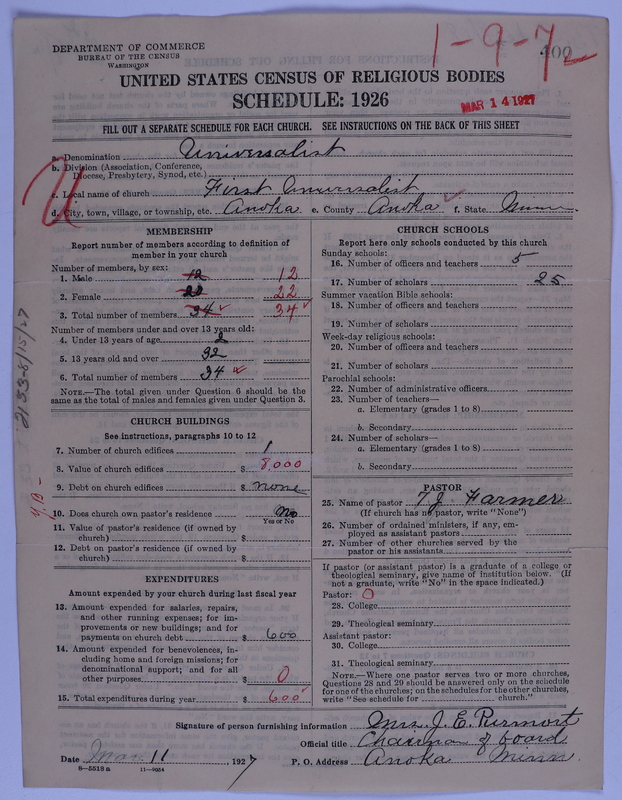 DEPARTMENT OF COMMERCE
BUREAU OF THE CENSUS
WASHINGTON
1-9-72
300
UNITED STATES CENSUS OF RELIGIOUS BODIES
SCHEDULE: 1926
MAR 14 1927
FILL OUT A SEPARATE SCHEDULE FOR EACH CHURCH. SEE INSTRUCTIONS ON THE BACK OF THIS SHEET
a. Denomination Universalist
b. Division (Association, Conference, Diocese, Presbytery, Synod, etc.)
c. Local name of church First Universalist
d. City, town, village, or township, etc. Anoka e. County Anoka f. State Minn.
MEMBERSHIP
Report number of members according to definition of member in your church
Number of members, by sex:
1. Male 12 12
2. Female 22 22
3. Total number of members 34 34
Number of members under and over 13 years old:
4. Under 13 years of age 2
5. 13 years old and over 32
6. Total number of members 34
NOTE.—The total given under Question 6 should be the same as the total of males and females given under Question 3.
CHURCH BUILDINGS
See instructions, paragraphs 10 to 12
7. Number of church edifices 1
8. Value of church edifices $ 8,000
9. Debt on church edifices $ none
10. Does church own pastor's residence no
Yes or No
11. Value of pastor's residence (if owned by church) $
12. Debt on pastor's residence (if owned by church) $
EXPENDITURES
Amount expended by your church during last fiscal year
13. Amount expended for salaries, repairs, and other running expenses; for improvements or new buildings; and for payments on church debt $ 600
14. Amount expended for benevolences, including home and foreign missions; for denominational support; and for all other purposes $ 0
15. Total expenditures during year $ 600
CHURCH SCHOOLS
Report here only schools conducted by this church
Sunday schools:
16. Number of officers and teachers 5
17. Number of scholars 25
Summer vacation Bible schools:
18. Number of officers and teachers
19. Number of scholars
Week-day religious schools:
20. Number of officers and teachers
21. Number of scholars
Parochial schools:
22. Number of administrative officers
23. Number of teachers—
a. Elementary (grades 1 to 8)
b. Secondary
24. Number of scholars—
a. Elementary (grades 1 to 8)
b. Secondary
PASTOR
25. Name of pastor T J. Farmer
(If church has no pastor, write "None")
26. Number of ordained ministers, if any, employed as assistant pastors
27. Number of other churches served by the pastor or his assistants
If pastor (or assistant pastor) is a graduate of a college or theological seminary, give name of institution below. (If not a graduate, write "No" in the space indicated.)
Pastor: 0
28. College
29. Theological seminary
Assistant pastor:
30. College
31. Theological seminary
NOTE.—Where one pastor serves two or more churches, Questions 28 and 29 should be answered only on the schedule for one of the churches; on the schedules for the other churches, write "See schedule for church."
Signature of person furnishing information Mrs. J. E.
Official title Chairman of board
Date Mar 11 1927 P. O. Address Anoka Minn
8—5518 a 11—9054